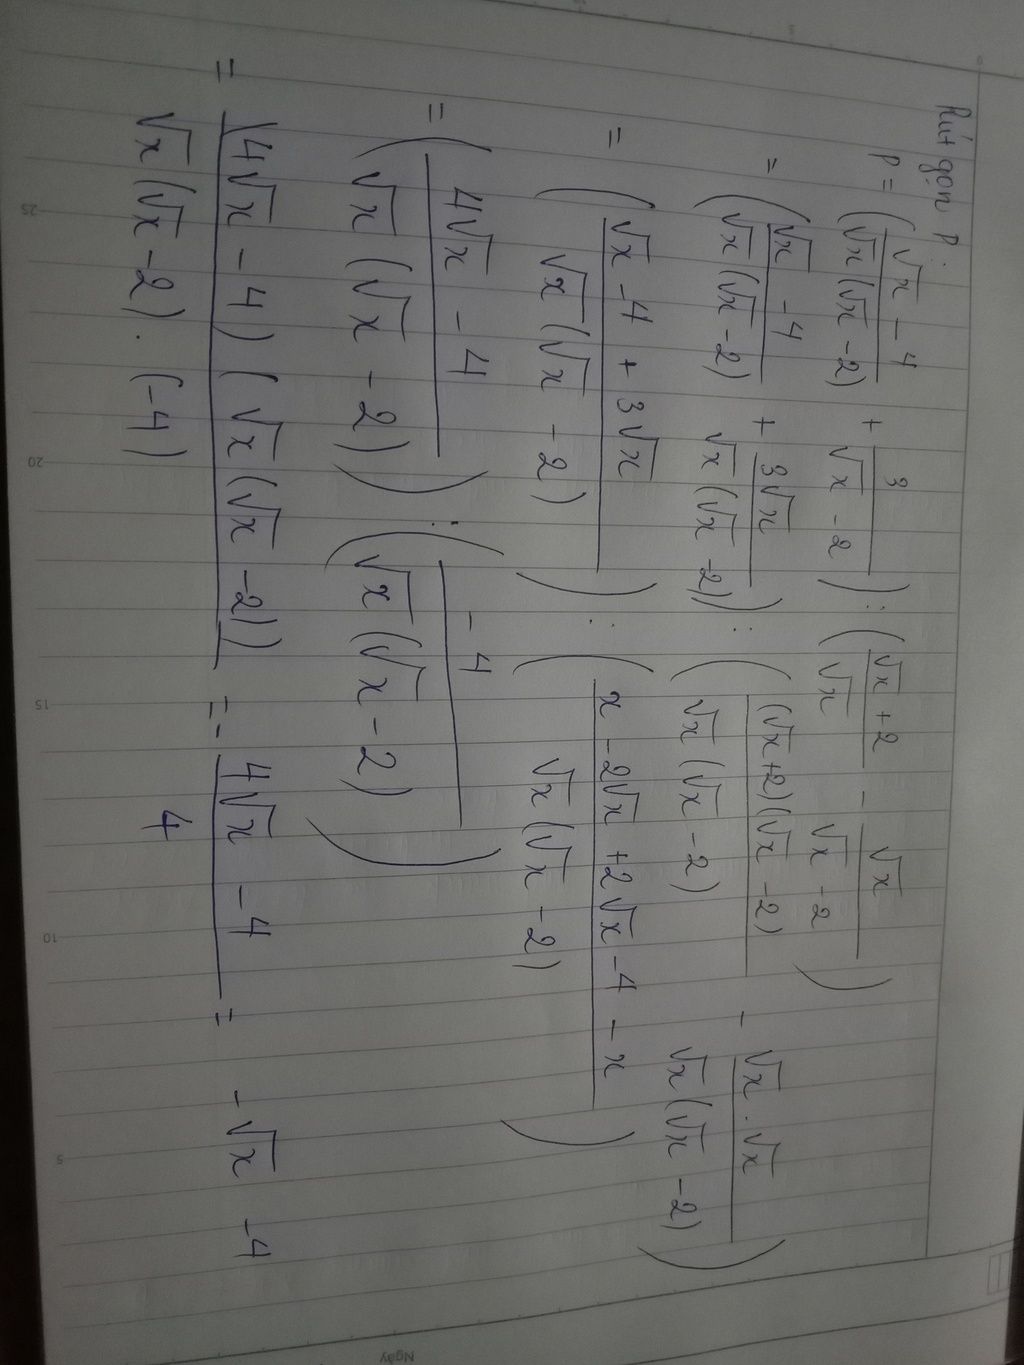 Rút gọn P:
P = ( (√x - 4)/(√x(√x - 2)) + 3/(√x - 2) ) : ( (√x + 2)/√x - √x/(√x - 2) )
= ( (√x - 4)/(√x(√x - 2)) + 3√x/(√x(√x - 2)) ) : ( (√x+2)(√x - 2)/(√x(√x - 2)) - √x . √x/(√x(√x - 2)) )
= ( (√x - 4 + 3√x)/(√x(√x - 2)) ) : ( (x - 2√x + 2√x - 4 - x)/(√x(√x - 2)) )
= ( (4√x - 4)/(√x(√x - 2)) ) : ( -4/(√x(√x - 2)) )
= (4√x - 4)(√x(√x - 2))/(√x(√x - 2) . (-4)) = - (4√x - 4)/4 = -√x - 4
25 20 15 10 5 0
Ngày